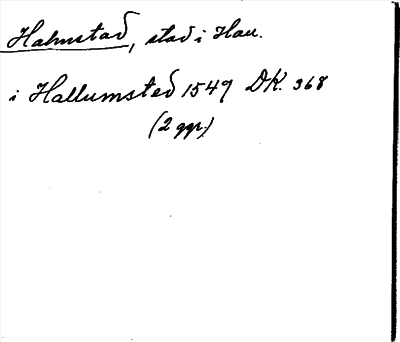 Halmstad, stad i Hall.
i Hallumsted 1549 DK. 368
(2 ggr.)